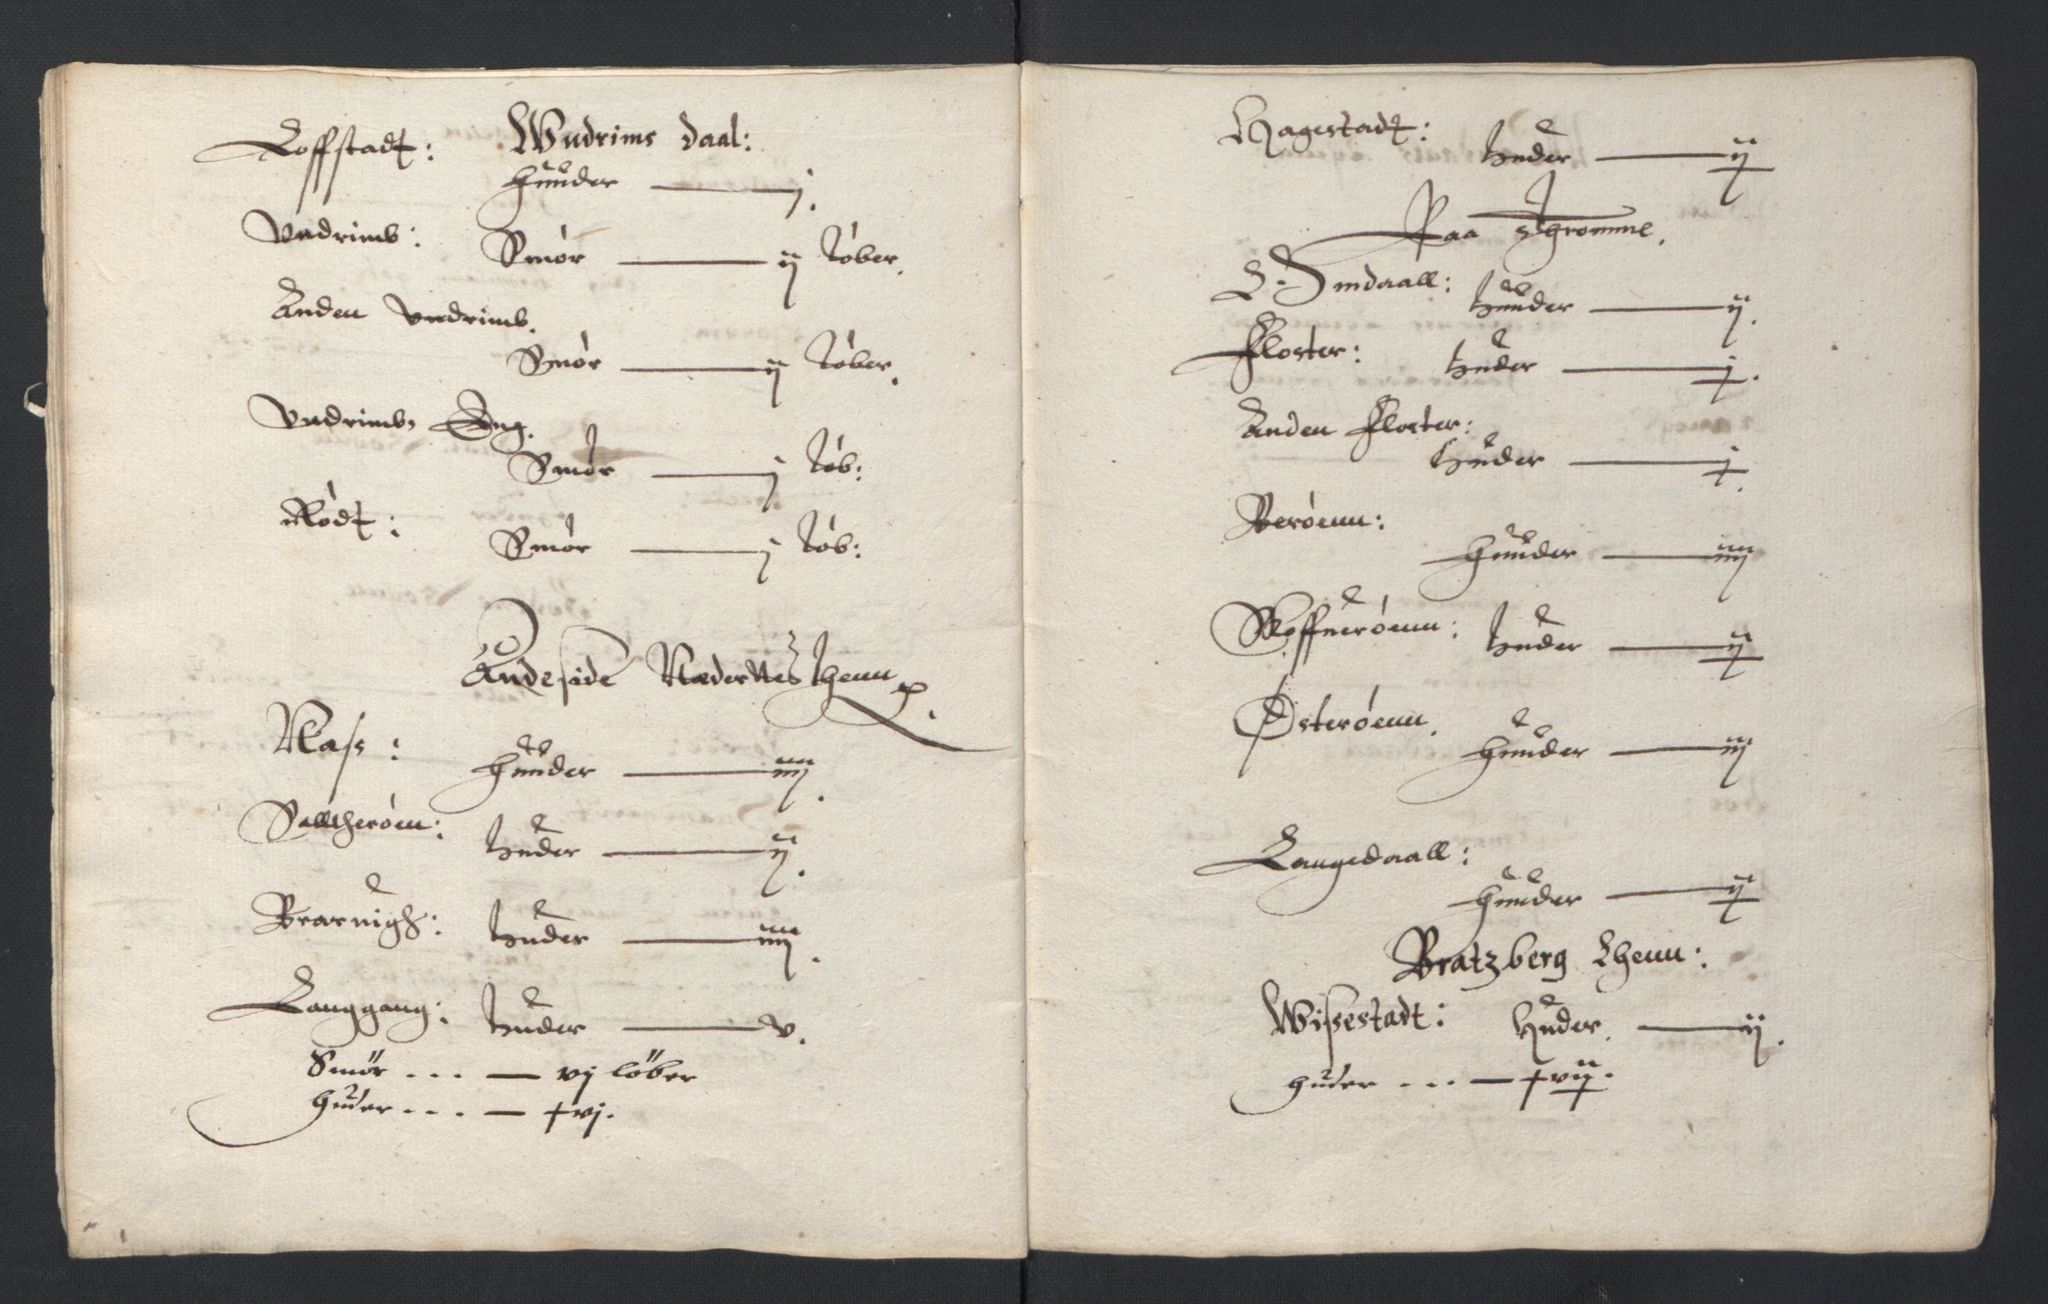 Wndrims daal:
Loffstadt: Huuder — j.
Vndrimb: Smör — ij löber.
Anden Vndrimb.
Smör — ij löber.
Vndrimbs Eng.
Smör — j löb:
Rödt: Smör — j löb:
Andeside Nædernes lhenn
Nass: Huuder — iiij.
Salltheröen: huder — ij.
Brarnigh: huder — iiij.
Langgang: huder — v.
Smör . . . — vj löber
huder . . . — xvj.
Hagestadt: huder — ij
Paa Thromme.
L. Sindaall: huuder — ij.
Kloster: huder — j.
Anden Kloster:
huder — j.
Beröenn:
Huuder — iiij
Skoffueröenn: huder — ij
Österöenn. Huuder — iij
Langedaall:
Huuder — ij
Bratzberg Lhenn:
Wissestadt: Huder. — ij.
huder . . . — xvij.